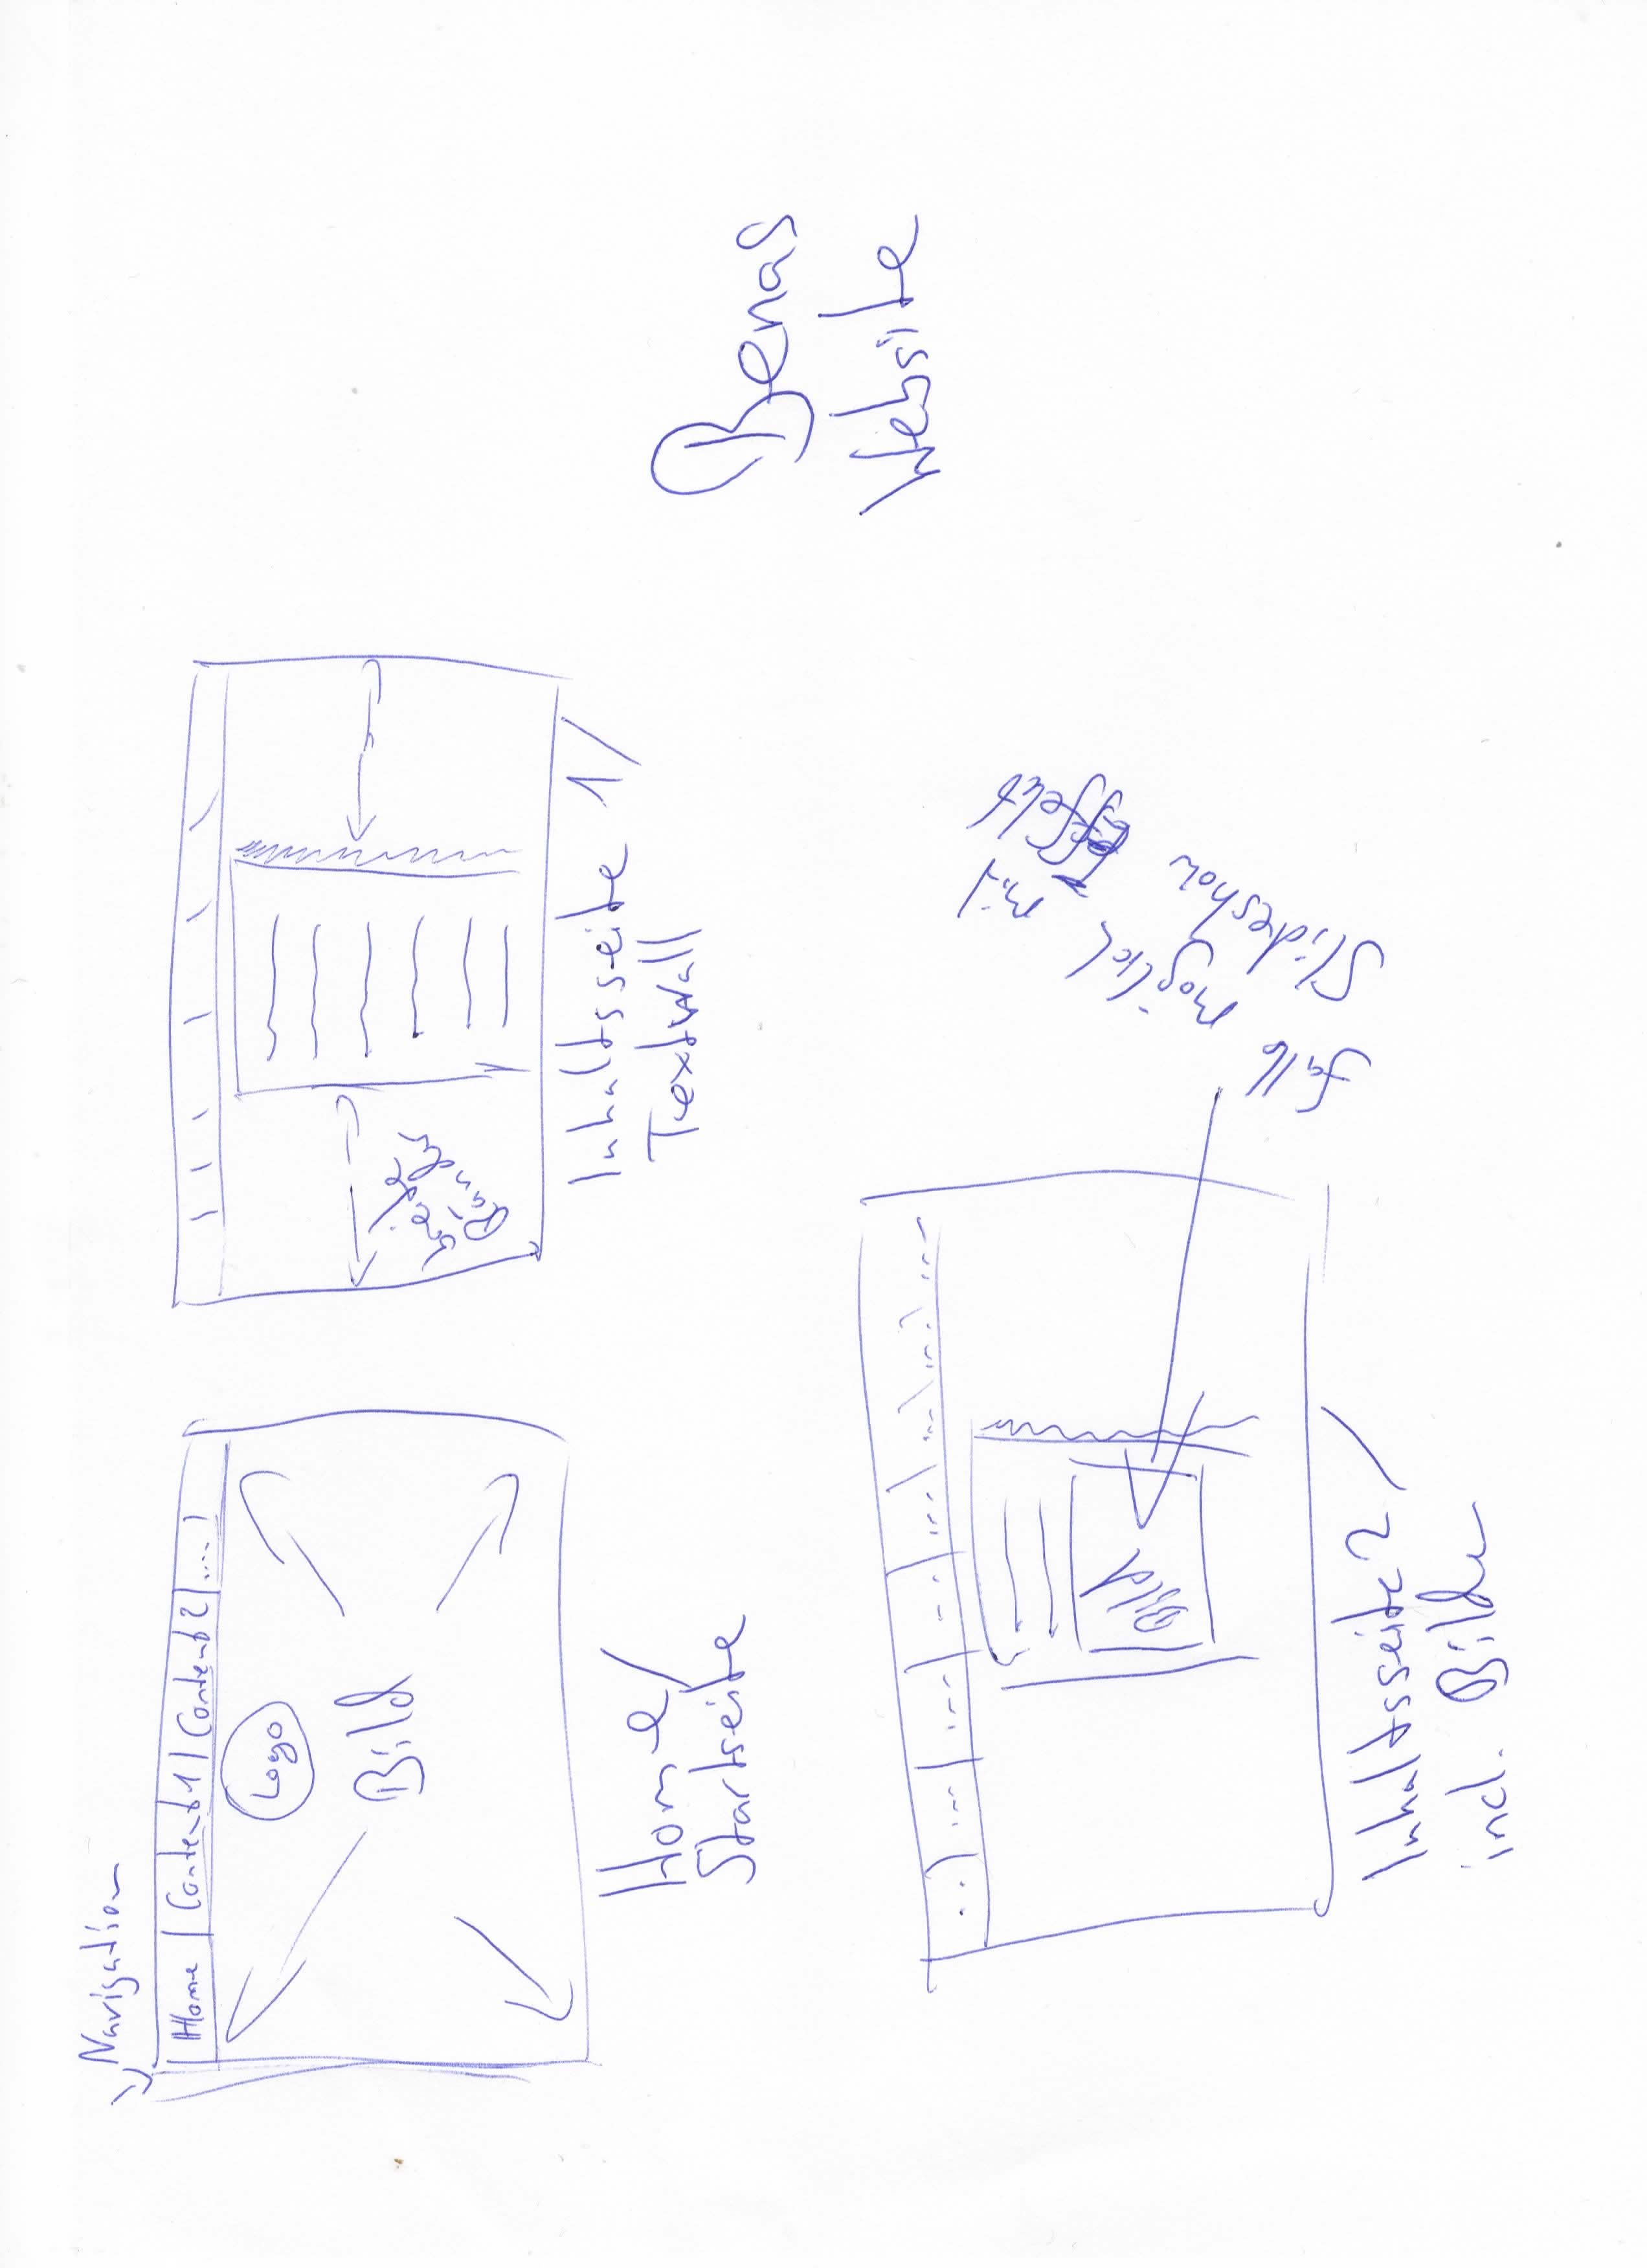 Navigation
Home | Content 1 | Content 2 | .... |
Logo
Bild
Home/
Startseite
breite
Ränder
Inhaltsseite 1/
Textwall
Benas
Website
Bild
falls möglich mit
Slideshow Effekt
Inhaltsseite 2/
incl. Bilder